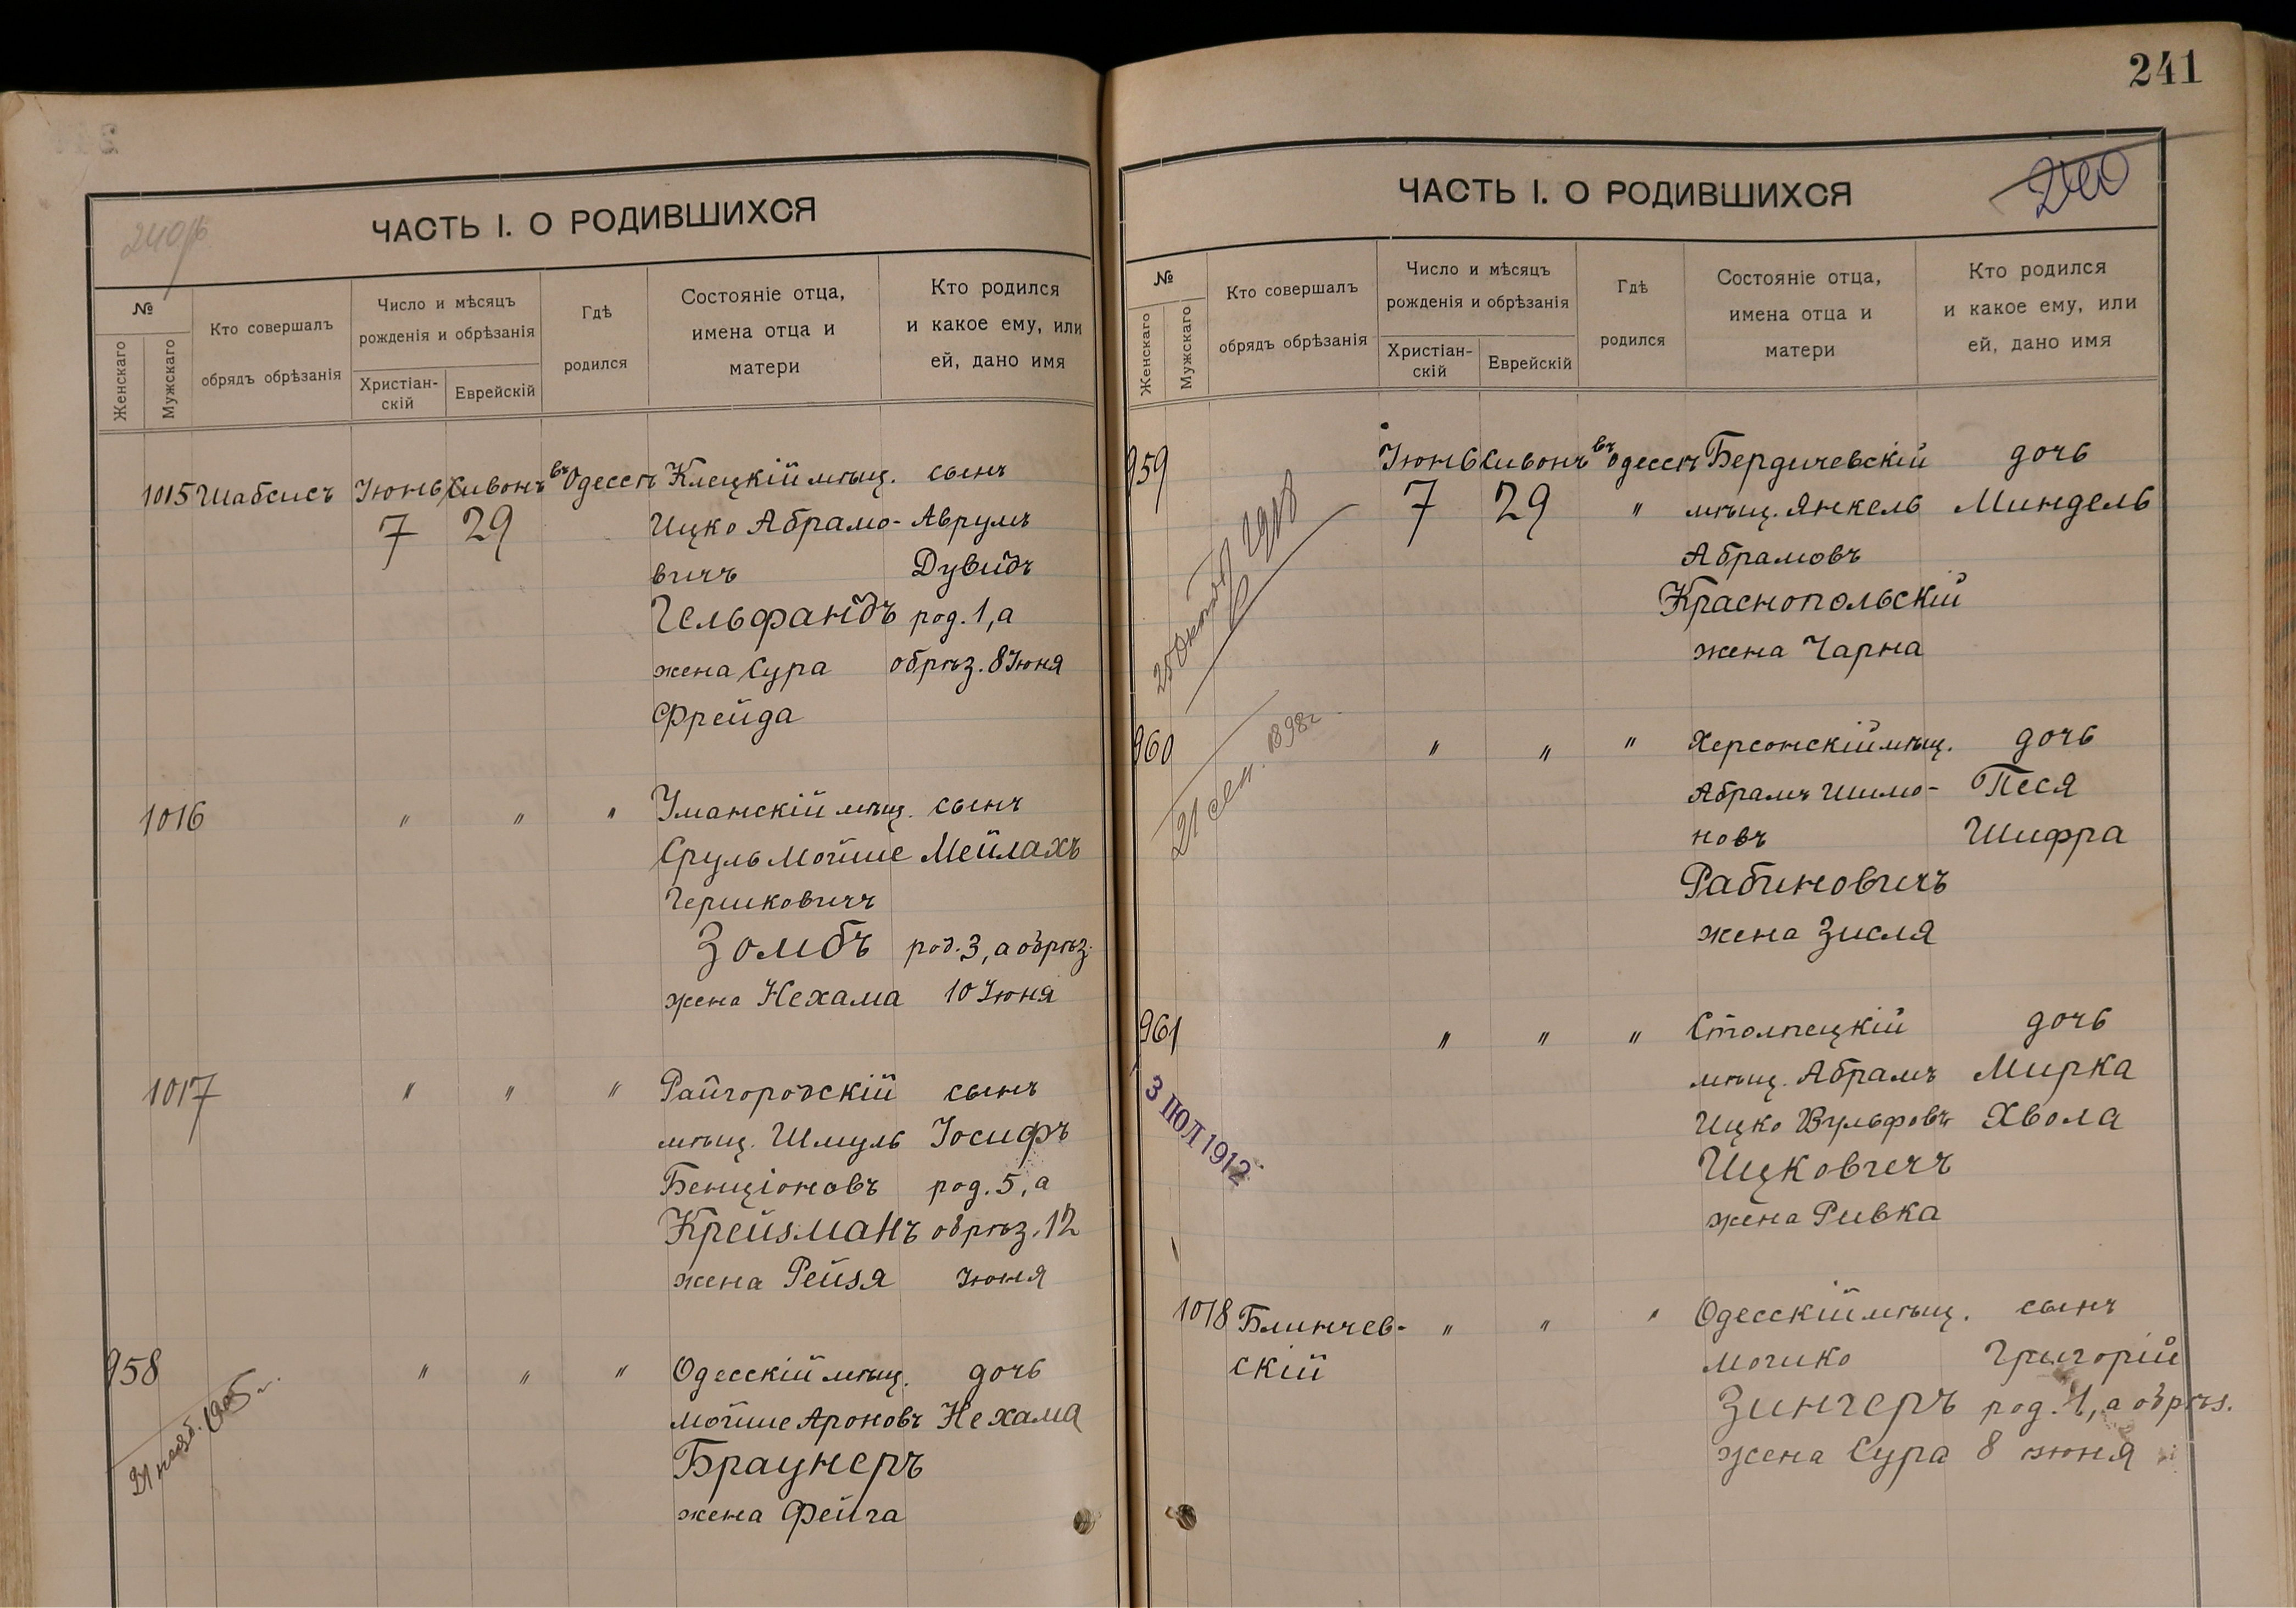 240об
ЧАСТЬ I. О РОДИВШИХСЯ
№
Женскаго
Мужскаго
Кто совершалъ
обрядъ обрѣзанія
Число и мѣсяцъ
рожденія и обрѣзанія
Христіан-
скій
Еврейскій
Гдѣ
родился
Состояніе отца,
имена отца и
матери
Кто родился
и какое ему, или
ей, дано имя
1015 Шабсисъ Іюнь Сивонъ въ Одессѣ Клецкій мѣщ. сынъ
7 29 Ицко Абрамо- Аврумъ
вичъ Дувидъ
Гельфандъ род. 1, а
жена Сура обрѣз. 8 Іюня
Фрейда
1016 " " " Уманскій мѣщ. сынъ
Сруль Мойше Мейлахъ
Гершковичъ
Зомбъ род. 3, а обрѣз.
жена Нехама 10 Іюня
1017 " " " Райгородскій сынъ
мѣщ. Шмуль Іосифъ
Бенціоновъ род. 5, а
Крейзманъ обрѣз. 12
жена Рейзя Іюня
958 " " " Одесскій мѣщ. дочь
Мойше Ароновъ Нехама
Браунеръ
жена Фейга
1905 г.
241
240
ЧАСТЬ I. О РОДИВШИХСЯ
№
Женскаго
Мужскаго
Кто совершалъ
обрядъ обрѣзанія
Число и мѣсяцъ
рожденія и обрѣзанія
Христіан-
скій
Еврейскій
Гдѣ
родился
Состояніе отца,
имена отца и
матери
Кто родился
и какое ему, или
ей, дано имя
959 Іюнь Сивонъ въ Одессѣ Бердичевскій дочь
7 29 " мѣщ. Янкель Миндель
Абрамовъ
Краснопольскій
жена Чарна
960 " " " Херсонскій мѣщ. дочь
Абрамъ Шимо- Песя
новъ Шифра
Рабиновичъ
жена Зисля
21 сен. 1898 г
961 " " " Столпецкій дочь
мѣщ. Абрамъ Мирка
Ицко Вульфовъ Хвола
Ицковичъ
жена Ривка
3 ІЮЛ 1912
1018 Блинчев- " " " Одесскій мѣщ. сынъ
скій Мошко Григорій
Зингеръ род. 1, а обрѣз.
жена Сура 8 июня